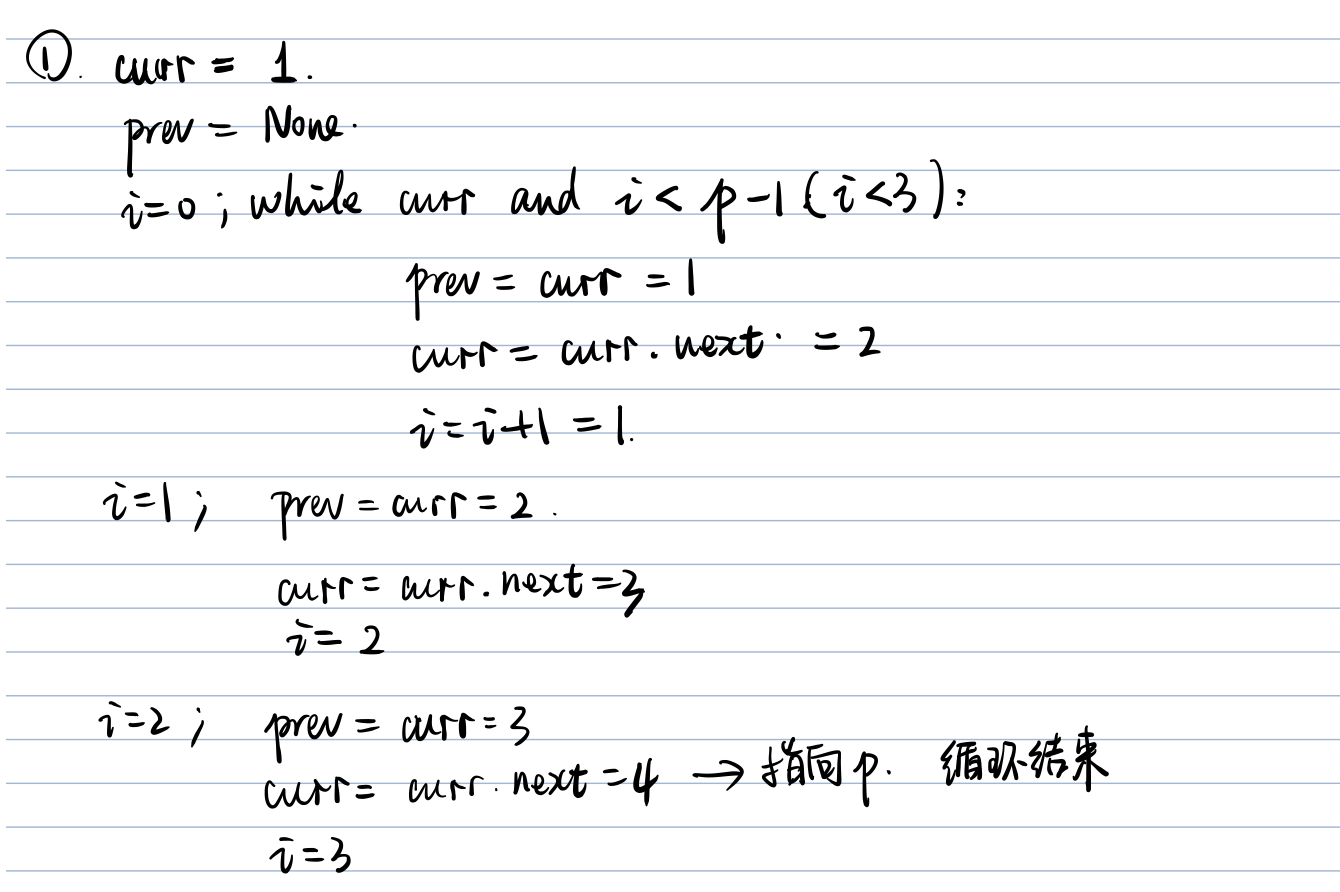 ①. curr = 1.
prev = None.
i=0 ; while curr and i < p-1 (i<3):
prev = curr = 1
curr = curr. next. = 2
i = i+1 = 1.
i=1 ; prev = curr = 2.
curr = curr. next = 3
i = 2
i=2 ; prev = curr = 3
curr = curr. next = 4 → 指向p. 循环结束
i=3